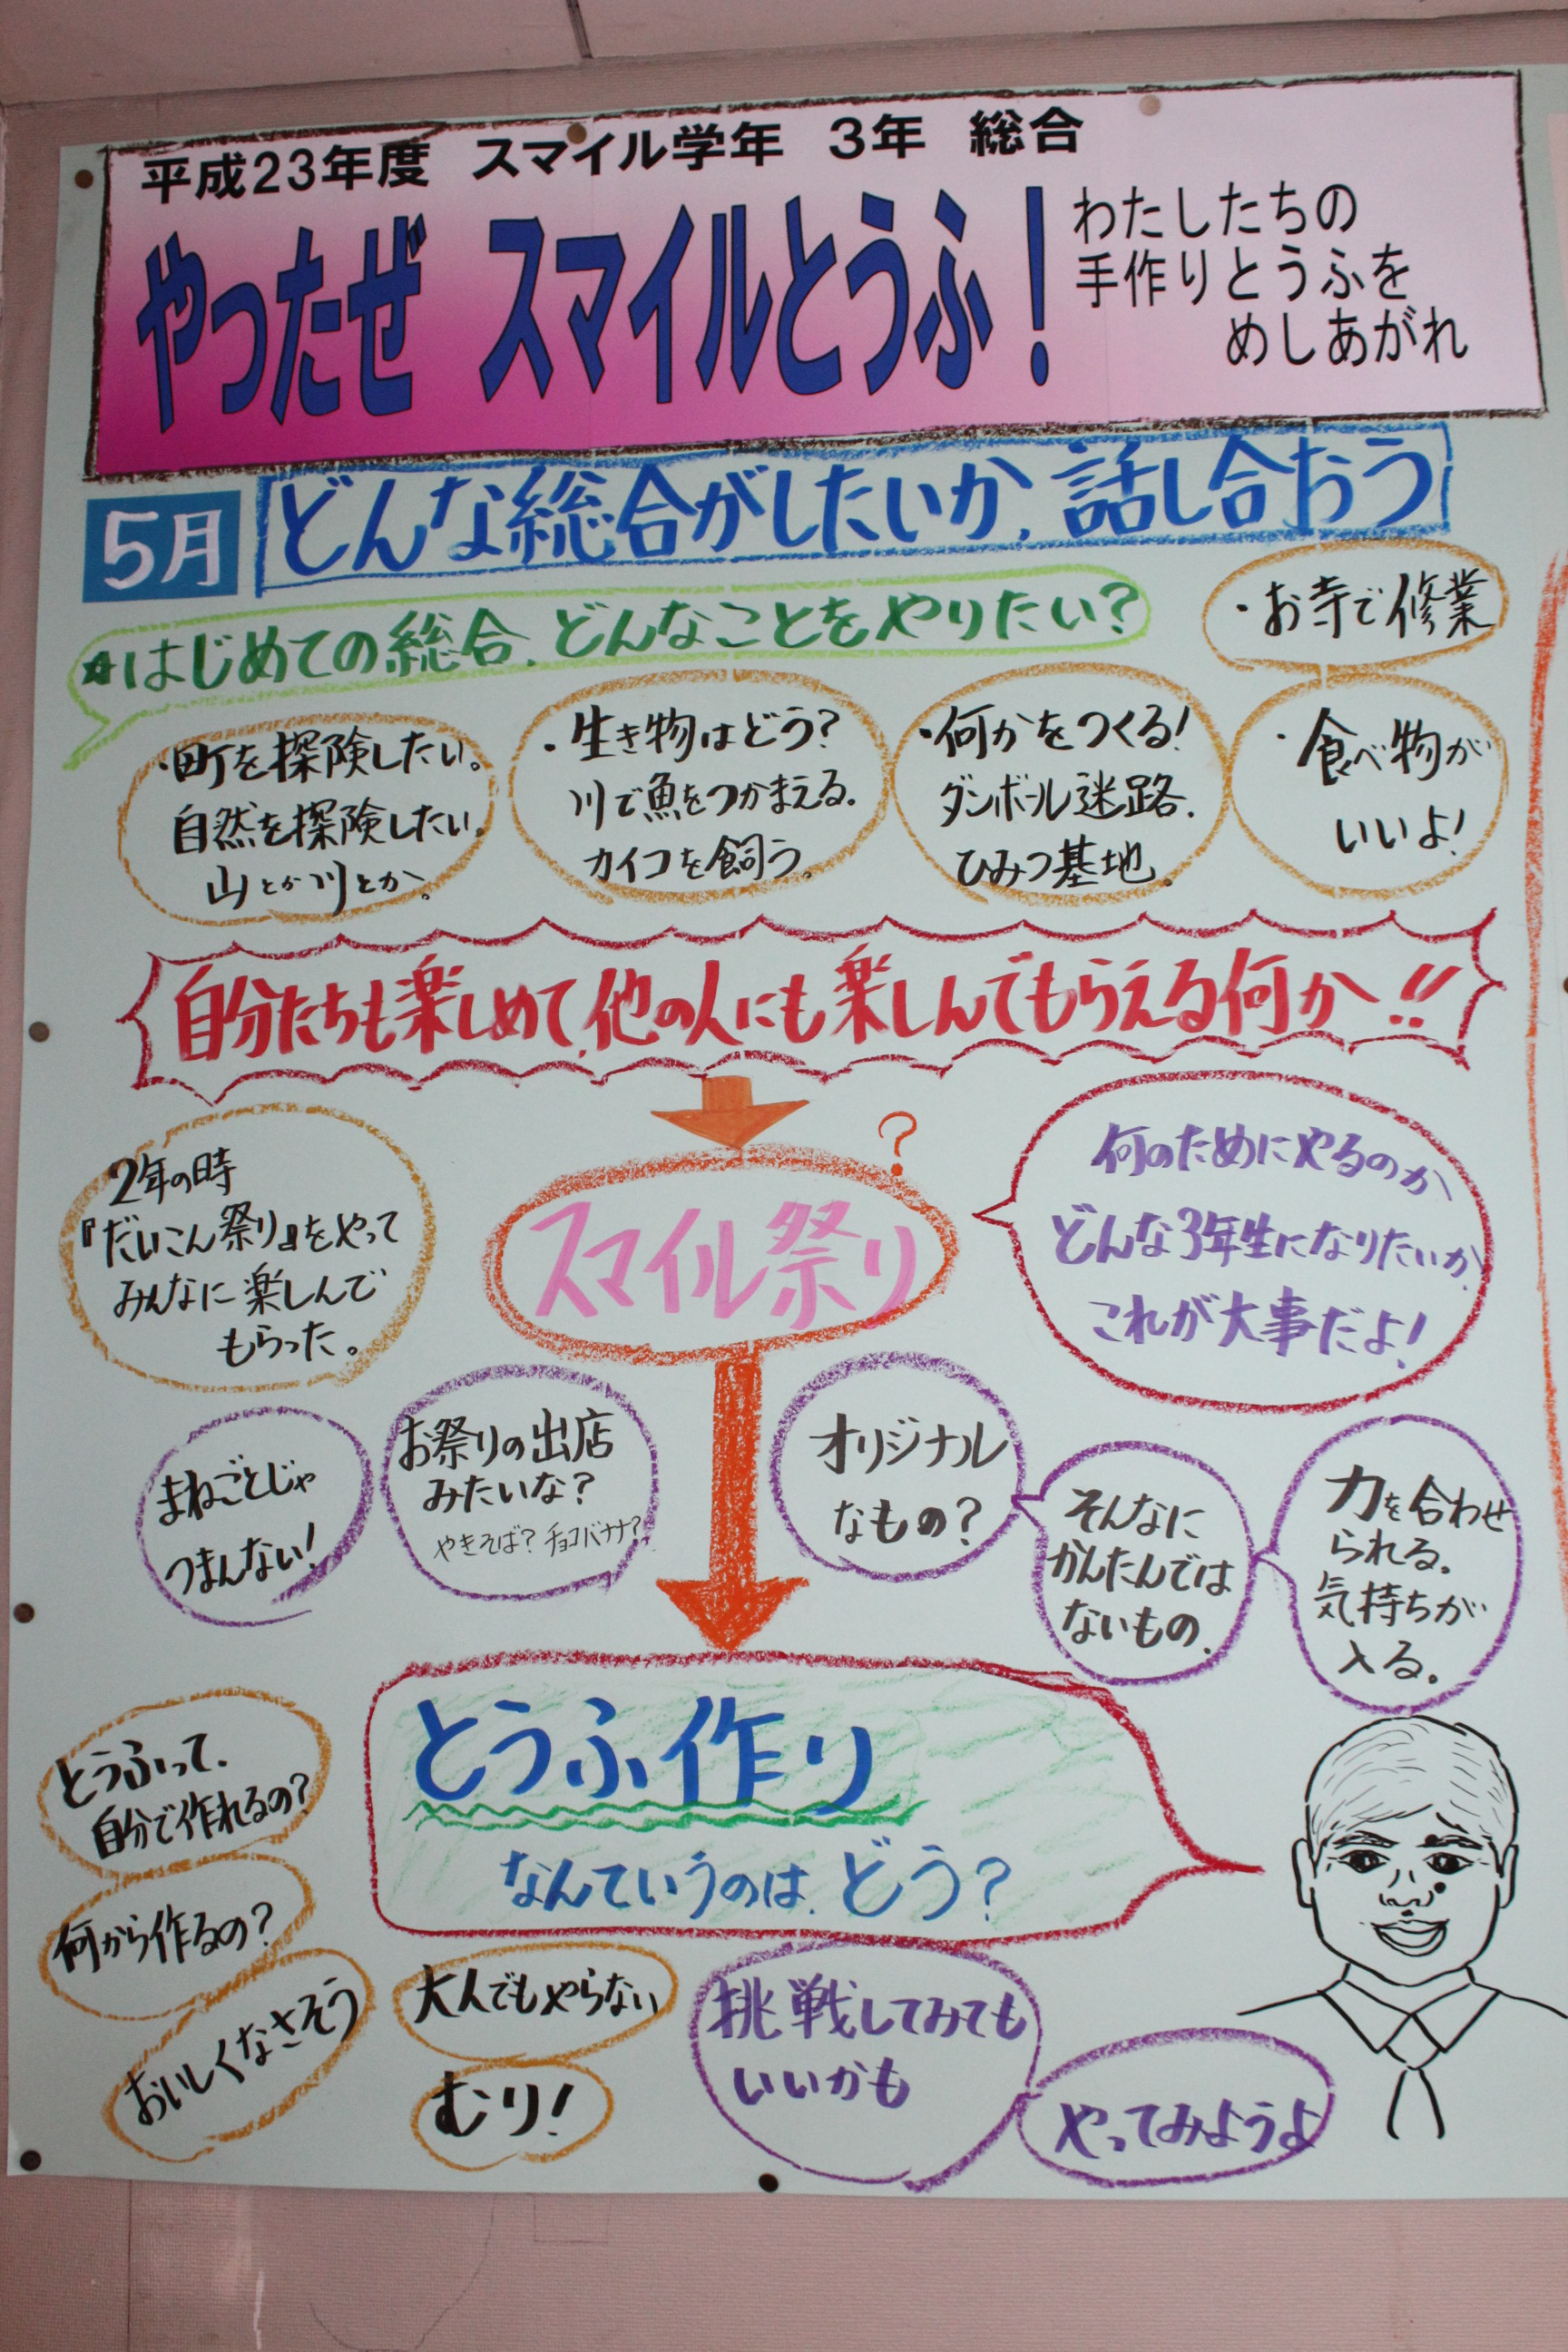 平成23年度 スマイル学年 3年 総合
やったぜ スマイルとうふ！
わたしたちの
手作りとうふを
めしあがれ
5月
どんな総合がしたいか、話し合おう
☆はじめての総合、どんなことをやりたい？
・お寺で修業
・町を探険したい。
自然を探険したい。
山とか川とか。
・生き物はどう？
川で魚をつかまえる。
カイコを飼う。
・何かをつくる！
ダンボール迷路、
ひみつ基地。
・食べ物が
いいよ！
自分たちも楽しめて、他の人にも楽しんでもらえる何か！！
2年の時
『だいこん祭り』をやって
みんなに楽しんで
もらった。
スマイル祭り
？
何のためにやるのか
どんな3年生になりたいか、
これが大事だよ！
まねごとじゃ
つまんない！
お祭りの出店
みたいな？
やきそば？チョコバナナ？
オリジナル
なもの？
そんなに
かんたんでは
ないもの。
力を合わせ
られる。
気持ちが
入る。
とうふ作り
なんていうのは、どう？
とうふって、
自分で作れるの？
何から作るの？
おいしくなさそう
大人でもやらない
むり！
挑戦してみても
いいかも
やってみようよ